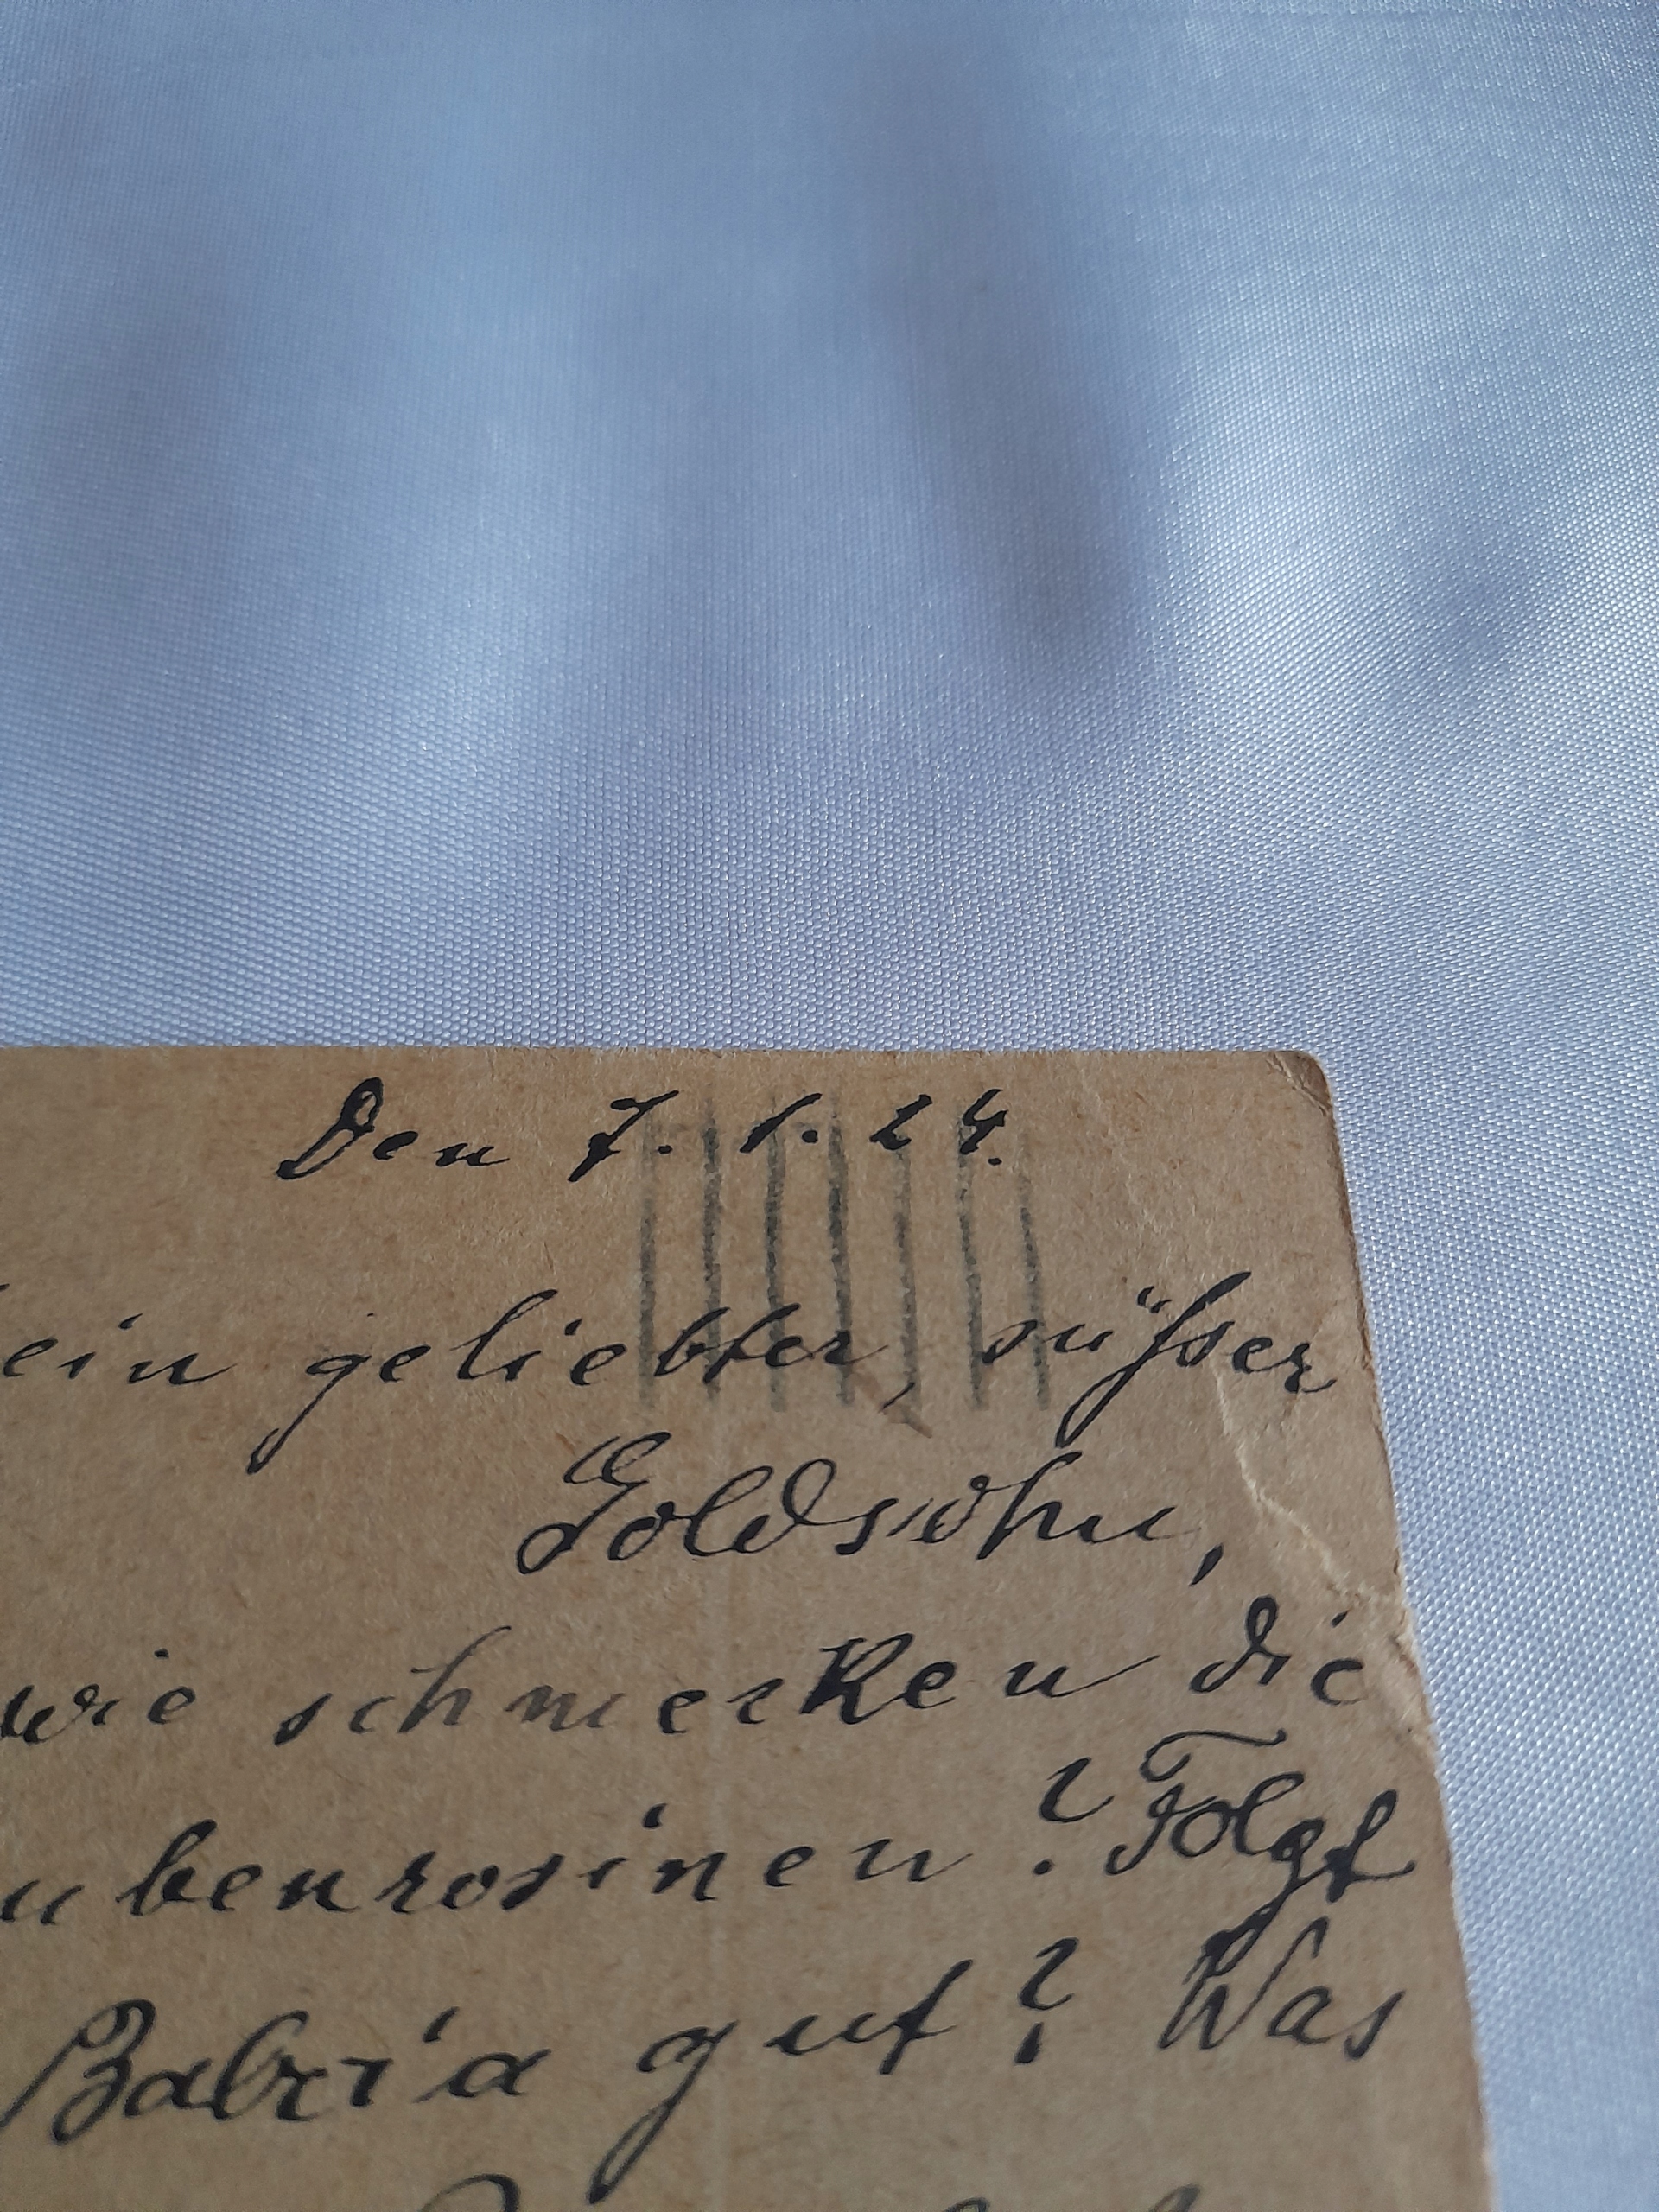 Den 7. 1. 24.
ein geliebter, süsser
Goldsohn,
wie schmecken die
ubenrosinen? Folgt
gut? Was